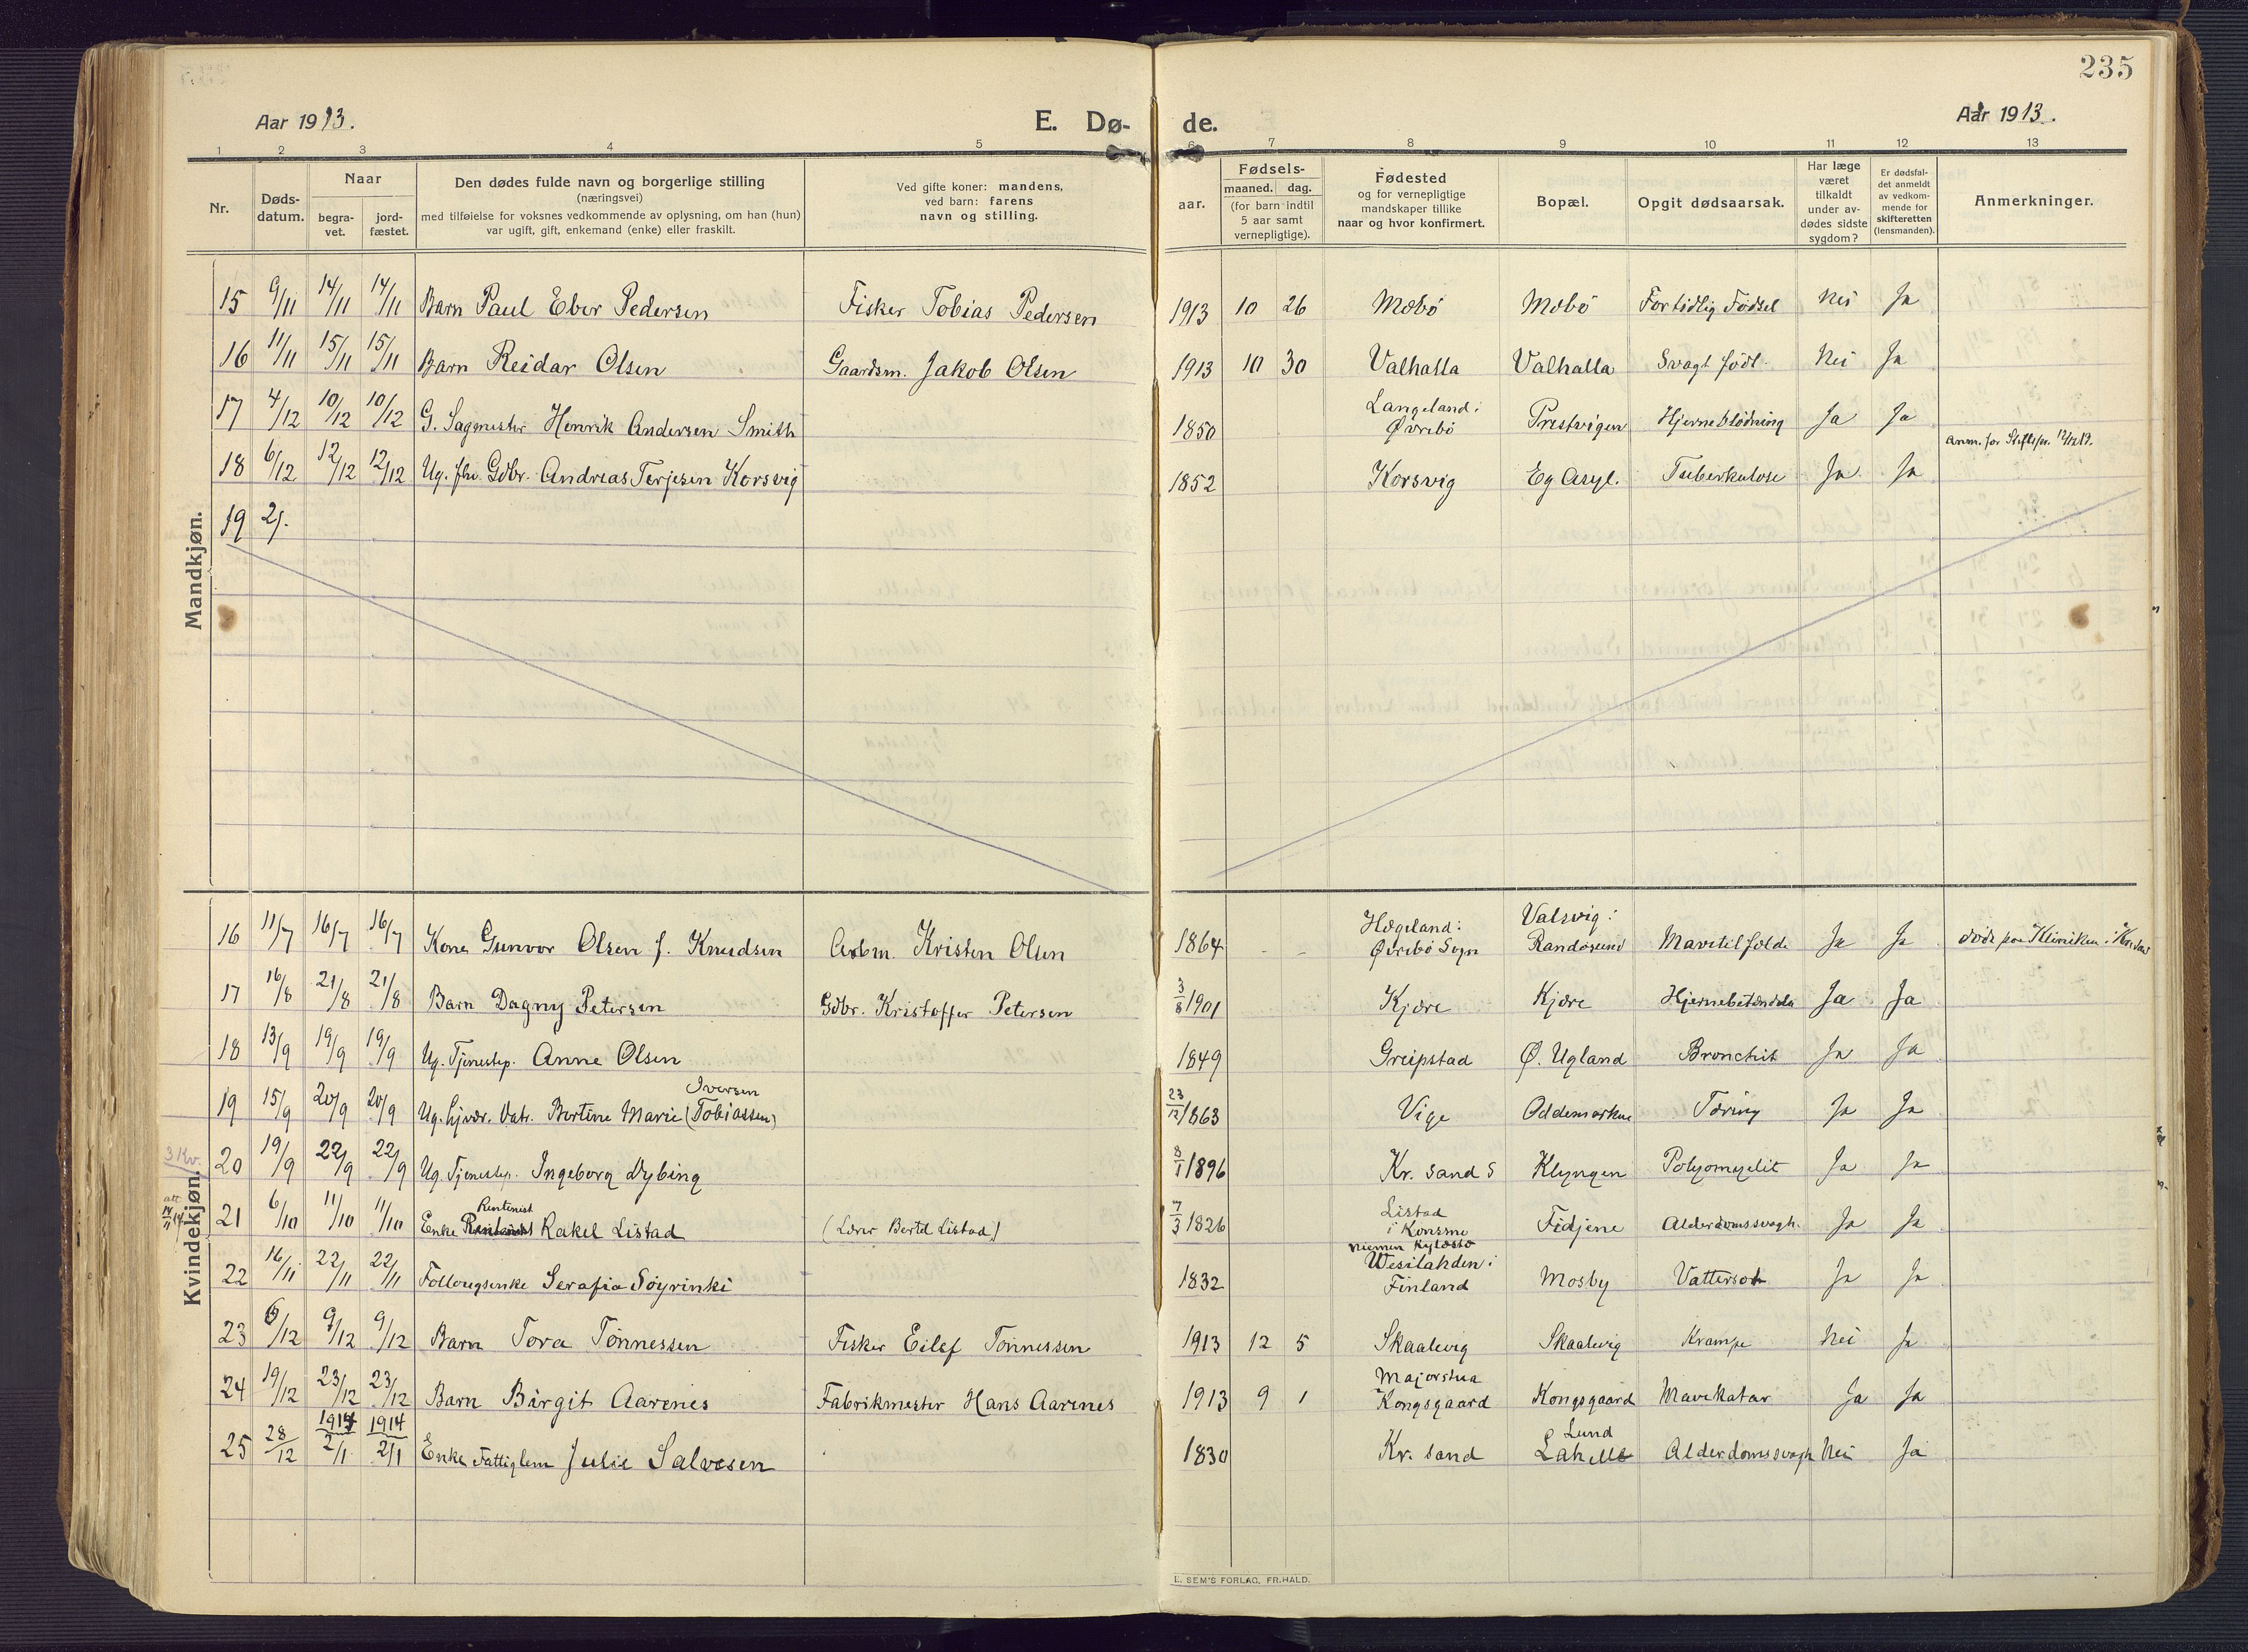 235
Aar 1913.
E. Dø- de.
Aar 1913.
1 2 3 4 5 6 7 8 9 10 11 12 13
Nr.
Døds-
datum.
Naar
begra-
vet.
jord-
fæstet.
Den dødes fulde navn og borgerlige stilling
(næringsvei)
med tilføielse for voksnes vedkommende av oplysning, om han (hun)
var ugift, gift, enkemand (enke) eller fraskilt.
Ved gifte koner: mandens,
ved barn: farens
navn og stilling.
aar.
Fødsels-
maaned. dag.
(for barn indtil
5 aar samt
vernepligtige).
Fødested
og for vernepligtige
mandskaper tillike
naar og hvor konfirmert.
Bopæl.
Opgit dødsaarsak.
Har læge
været
tilkaldt
under av-
dødes sidste
sygdom?
Er dødsfal-
det anmeldt
av vedkom-
mende for
skifteretten
(lensmanden).
Anmerkninger.
Mandkjøn.
15 9/11 14/11 14/11 Barn Paul Eber Pedersen Fisker Tobias Pedersen 1913 10 26 Mæbø Mæbø For tidlig Fødsel Nei Ja
16 11/11 15/11 15/11 Barn Reidar Olsen Gaardsm. Jakob Olsen 1913 10 30 Valhalla Valhalla Svagt født Nei Ja
17 4/12 10/12 10/12 G. Sagmester Henrik Andersen Smith 1850 Langeland i Øvrebø Prestvigen Hjerneblødning Ja Ja
Anm. for Skiftefor.
18 6/12 12/12 12/12 Ug. fhv. Gdbr. Andreas Terjesen Korsvig 1852 Korsvig Eg Asyl. Tuberkulose Ja Ja
19 2/.
Kvindekjøn.
16 11/7 16/7 16/7 Kone Gunvor Olsen f. Knudsen Arbm. Kristen Olsen 1864 - - Hægeland: Øvrebø Sogn Valsvig: Randøsund Mavetilfælde Ja Ja døde paa Kliniken i
17 16/8 21/8 21/8 Barn Dagny Petersen Gdbr. Kristoffer Petersen 3/8 1901 Kjære Kjære Hjernebetændelse Ja Ja
18 13/9 19/9 19/9 Ug. Tjenestep. Anne Olsen 1849 Greipstad Ø. Ugland Bronchit Ja Ja
Iversen
19 15/9 20/9 20/9 Ug. hjvær. Datr. Bertine Marie (Tobiassen) 23/12 1863 Vige Oddemarken Tæring Ja Ja
3 Kv.
20 19/9 22/9 22/9 Ug. Tjenestep. Ingeborg Dybing 3/1 1896 Kr. sand S Klyngen Polyomyelit Ja Ja
Rentenist
21 6/10 11/10 11/10 Enke Rakel Listad (Lærer Bertel Listad) 7/3 1826 Listad i Konsmo Fidjene Alderdomssvagh. Ja Ja
22 16/11 22/11 22/11 Serafia Söyrinki 1832 Niemen Kylästö Wesilahden i Finland Mosby Vattersot Ja Ja
23 6/12 9/12 9/12 Barn Tora Tönnessen Fisker Eilef Tönnessen 1913 12 5 Skaalevig Skaalevig Krampe Nei Ja
24 19/12 23/12 23/12 Barn Birgit Aarenes Fabrikmester Hans Aarenes 1913 9 1 Majorstua Kongsgaard Kongsgaard Mavekatar Ja Ja
25 28/12 1914 2/1 1914 2/1 Enke Fattiglem Julie Salvesen 1830 Kr. sand Lund Lahelle Alderdomssvagh Nei Ja
E. SEM'S FORLAG, FR.HALD.